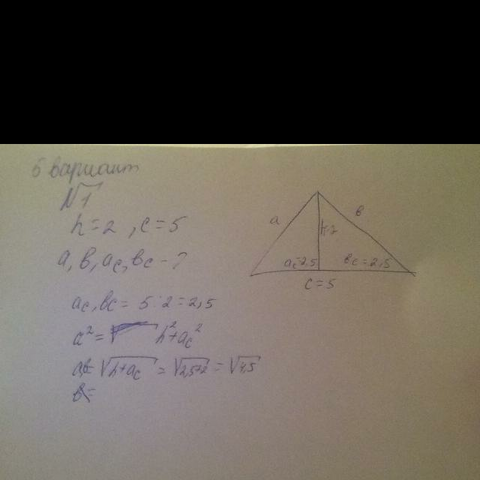 5 вариант
№1
h=2, c=5
a, в, a_c, в_c - ?
a_c, в_c = 5:2=2,5
a² = h²+a_c²
a = √h+a_c = √2,5+2 = √4,5
в=
a
в
h=2
a_c=2,5
в_c=2,5
c=5